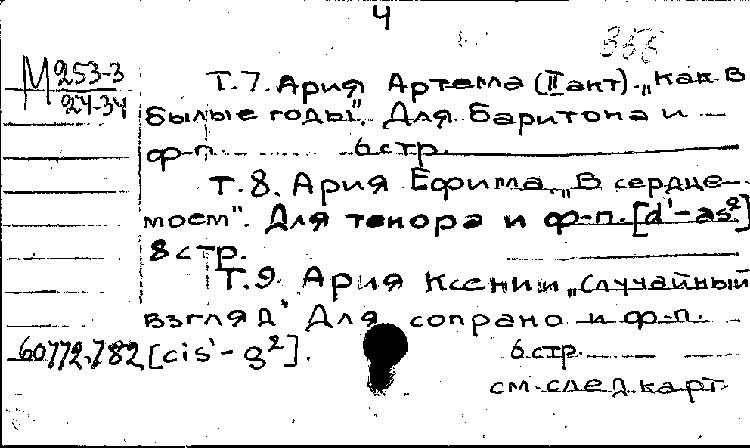 4
М 253-3
24-34
Т.7. Ария Артема (II акт). „Как в
былые годы". Для баритона и
ф-п. 6 стр.
Т.8. Ария Ефима „В сердце
моем". Для тенора и ф-п. [d'-as²]
8 стр.
Т.9. Ария Ксении „Случайный
взгляд" Для сопрано и ф-п.
60772.782 [cis'-g²]. 6 стр.
см. след. карт